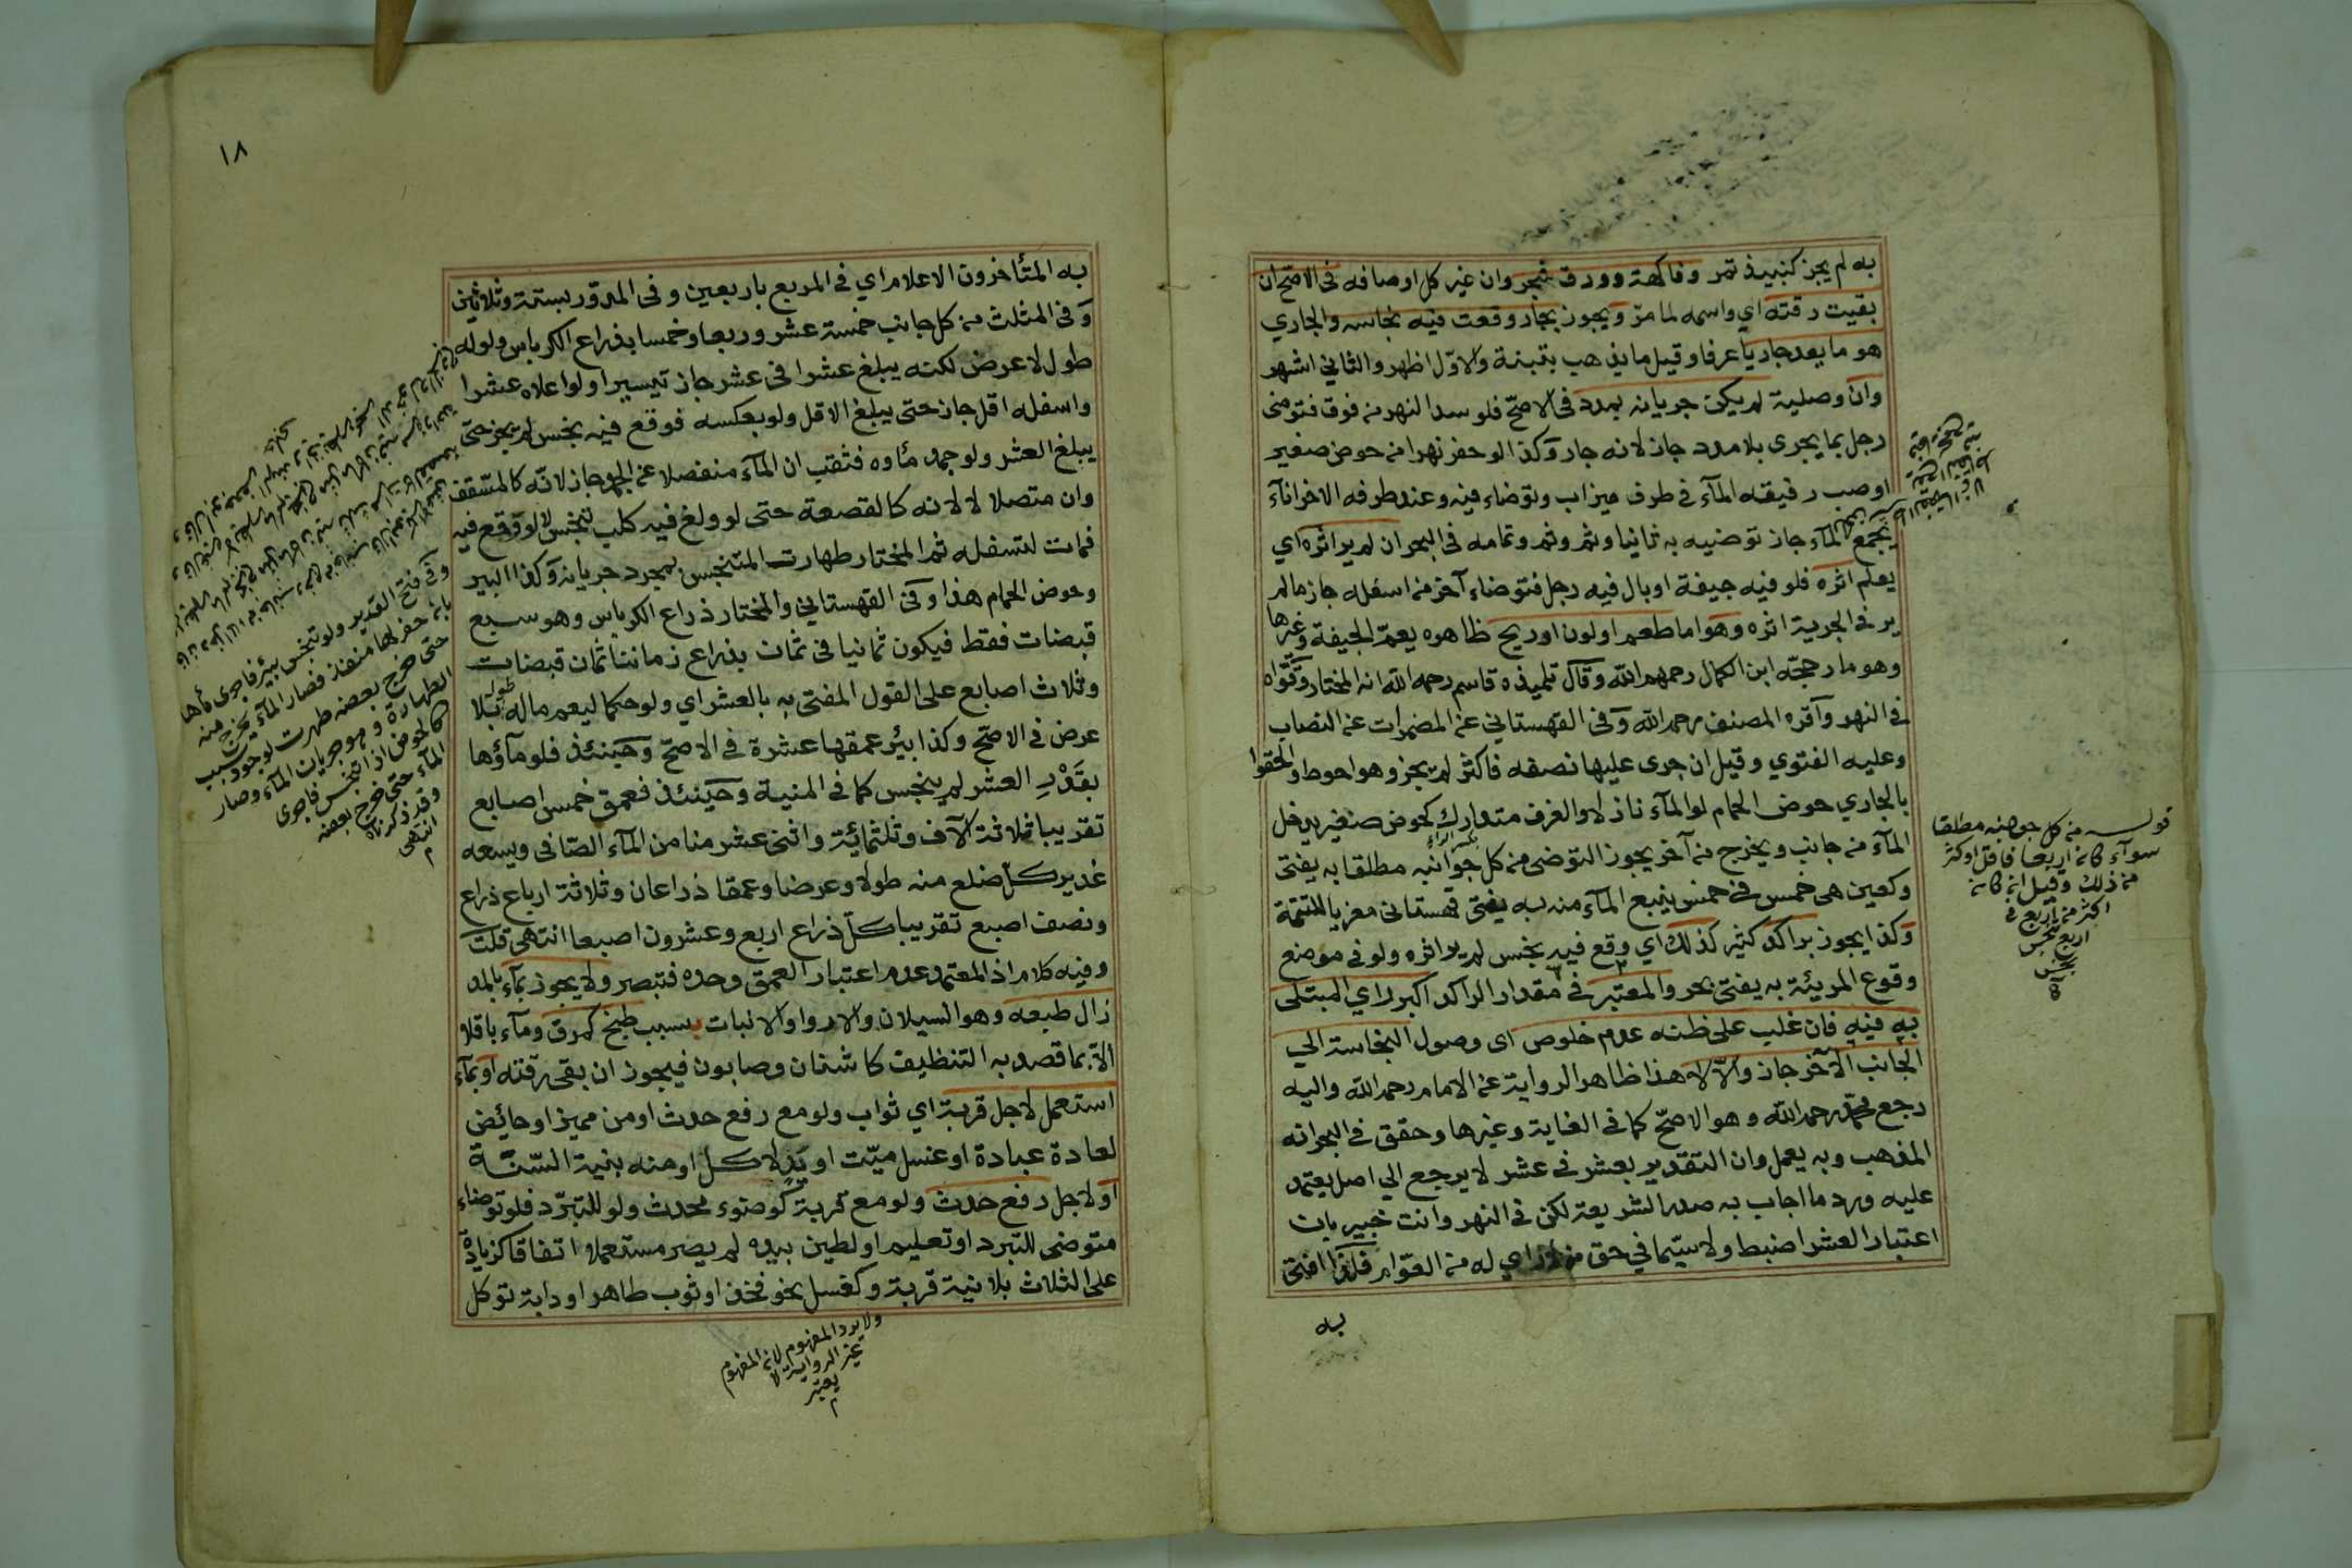 به لم يجز كنبيذ تمر وفاكهة وورق شجر وان غير كل اوصافه فى الاصح ان
بقيت رقته اي واسمه لما مرّ ويجوز بجار وقعت فيه نجاسة والجاري
هو ما يعد جاريا عرفا وقيل ما يذهب بتبنة والاوّل اظهر والثاني اشهر
وان وصلية لم يكن جريانه بمدد فى الاصحّ فلو سد النهر من فوق فتوضى
رجل بما يجرى بلا مدد جاز لانه جار وكذا لو حفر نهرا من حوض صغير
او صب رفيقه المآء فى طرف ميزاب وتوضاء فيه وعند طرفه الاخر اناآء
يجمع المآء جاز توضيه به ثانيا وثم وثم وتمامه فى البحر ان لم ير اثره اي
يعلم اثره فلو فيه جيفة او بال فيه رجل فتوضاء آخر من اسفله جاز ما لم
ير في الجرية اثره وهو اما طعم او لون او ريح ظاهره يعمّ الجيفة وغيرها
وهو ما رجحّه ابن الكمال رحمهم الله وقال تلميذه قاسم رحمه الله انه المختار وقوّاه
في النهر وآقره المصنف رحمه الله وفى القهستاني عن المضمرات عن النصاب
وعليه الفتوي وقيل ان جرى عليها نصفه فاكثر لم يجز وهو احوط والحقوا
بالجاري حوض الحمام لو المآء نازلا والغرف متدارك كحوض صغير يدخل
المآء من جانب ويخرج من آخر يجوز التوضى من كل جوانبه مطلقا به يفتى
وكعين هى خمس فى خمس ينبع المآء منه به يفتى قهستانى معزيا للتتمة
وكذا يجوز براكد كثير كذلك اي وقع فيه نجس لم ير اثره ولو فى موضع
وقوع المرئية به يفتى بحر والمعتبر فى مقدار الراكد اكبر راي المبتلى
به فيه فان غلب على ظنه عدم خلوص اى وصول النجاسة الي
الجانب الآخر جاز والاّ لا هذا ظاهر الرواية عن الامام رحمه الله واليه
رجع محمّد رحمه الله وهو الاصحّ كما فى الغاية وغيرها وحقق فى البحر انه
المذهب وبه يعمل وان التقدير بعشر فى عشر لا يرجع الي اصل يعتمد
عليه ورد ما اجاب به صدر الشريعة لكن فى النهر وانت خبير بان
اعتبار العشر اضبط ولا سيّما في حق من لا راي له من العوّام فلذا افتى
به
قوله من كل جوانبه مطلقا
سوآء كان اربعا فاقل او اكثر
من ذلك وقيل ان كان
اكثر من اربع فى
اربع نجس
١٨
به المتأخرون الاعلام اي في المربع باربعين وفى المدوّر بستة وثلاثين
وفى المثلث من كل جانب خمسة عشر وربعا وخمسا بذراع الكرباس ولو له
طول لا عرض لكنه يبلغ عشرا فى عشر جاز تيسيرا ولو اعلاه عشرا
واسفله اقل جاز حتى يبلغ الاقل ولو بعكسه فوقع فيه نجس لم يجز حتى
يبلغ العشر ولو جمد مآوه فثقب ان المآء منفصلا عن الجمد جاز لانّه كالمسقف
وان متصلا لا لانه كالقصعة حتى لو ولغ فيه كلب تنجس لا لو وقع فيه
فمات لتسفله ثم المختار طهارت المتنجس بمجرد جريانه وكذا البير
وحوض الحمام هذا وفى القهستاني والمختار ذراع الكرباس وهو سبع
قبضات فقط فيكون ثمانيا فى ثمان بذراع زماننا ثمان قبضات
وثلاث اصابع على القول المفتى به بالعشر اي ولو حكما ليعم ماله طول بلا
عرض فى الاصحّ وكذا بئر عمقها عشرة فى الاصحّ وحينئذ فلو مآؤها
بقَدْرِ العشر لم ينجس كما فى المنية وحينئذ فعمق خمس اصابع
تقريبا ثلاثة آلاف وثلثمائة واثنى عشر منا من المآء الصّافى ويسعه
غدير كلّ ضلع منه طولا وعرضا وعمقا ذراعان وثلاثة ارباع ذراع
ونصف اصبع تقريبا كلّ ذراع اربع وعشرون اصبعا انتهى قلت
وفيه كلام اذ المعتمد عدم اعتبار العمق وحده فتبصر ولا يجوز بمآء بالمد
زال طبعه وهو السيلان والاروا والانبات بسبب طبخ كمرق ومآء باقلا
الاّ بما قصد به التنظيف كاشنان وصابون فيجوز ان بقى رقته او بمآء
استعمل لاجل قربة اي ثواب ولو مع رفع حدث او من مميز او حائض
لعادة عبادة او غسل ميّت او يَد لاكل او منه بنية السّنّة
او لاجل رفع حدث ولو مع قربة كوضوء محدث ولو للتبرّد فلو توضاء
متوضى للتبرد او تعليم او لطين بيده لم يصر مستعملا اتفاقا كزيادة
على الثلاث بلا نية قربة وكغسل نحو فخذ او ثوب طاهر او دابة توكل
وفى فتح القدير ولو تنجس بئر فاجرى مآها
بان حفر لها منفذ فصار المآء يخرج منه
حتى خرج بعضه طهرت لوجود سبب
الطهارة وهو جريان المآء وصار
كالحوض اذا تنجس فاجرى
المآء حتى خرج بعضه
وقد ذكرناه
انتهى
ولا يرد المفهوم لان المفهوم
غير الرواية لا
يعتبر